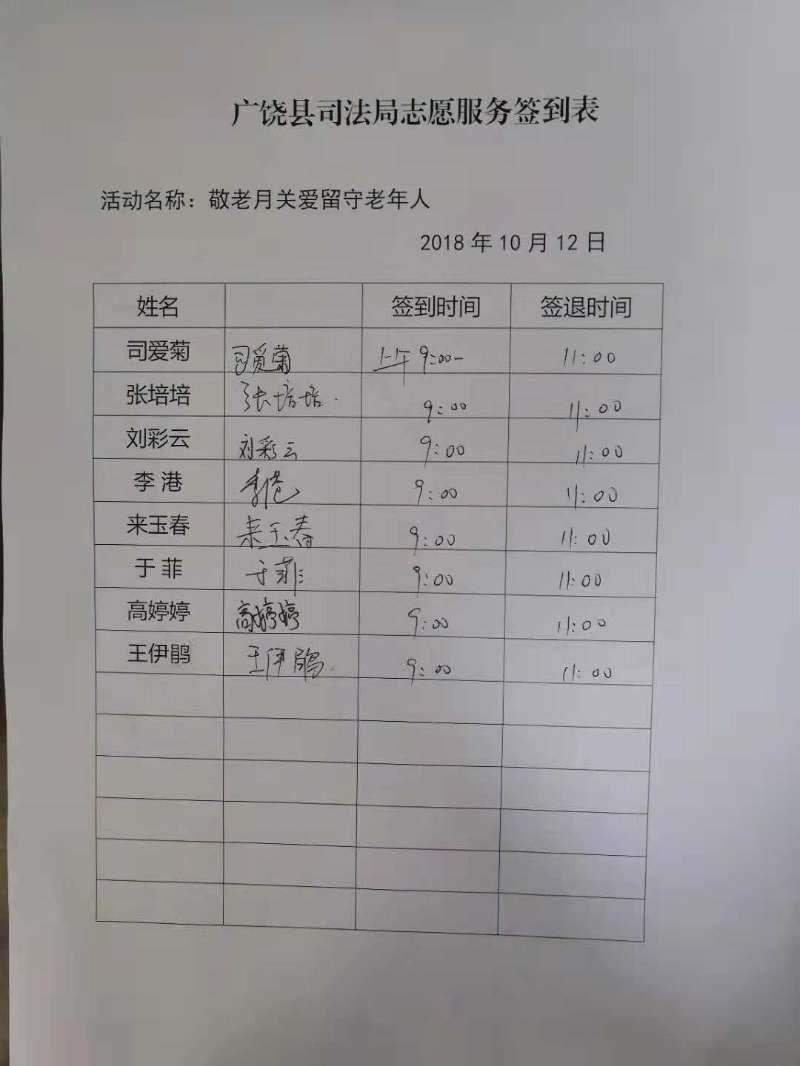 广饶县司法局志愿服务签到表
活动名称：敬老月关爱留守老年人
2018年10月12日
姓名 签到时间 签退时间
司爱菊 司爱菊 上午9:00 11:00
张培培 张培培 9:00 11:00
刘彩云 刘彩云 9:00 11:00
李港 李港 9:00 11:00
来玉春 来玉春 9:00 11:00
于菲 于菲 9:00 11:00
高婷婷 高婷婷 9:00 11:00
王伊鹃 王伊鹃 9:00 11:00